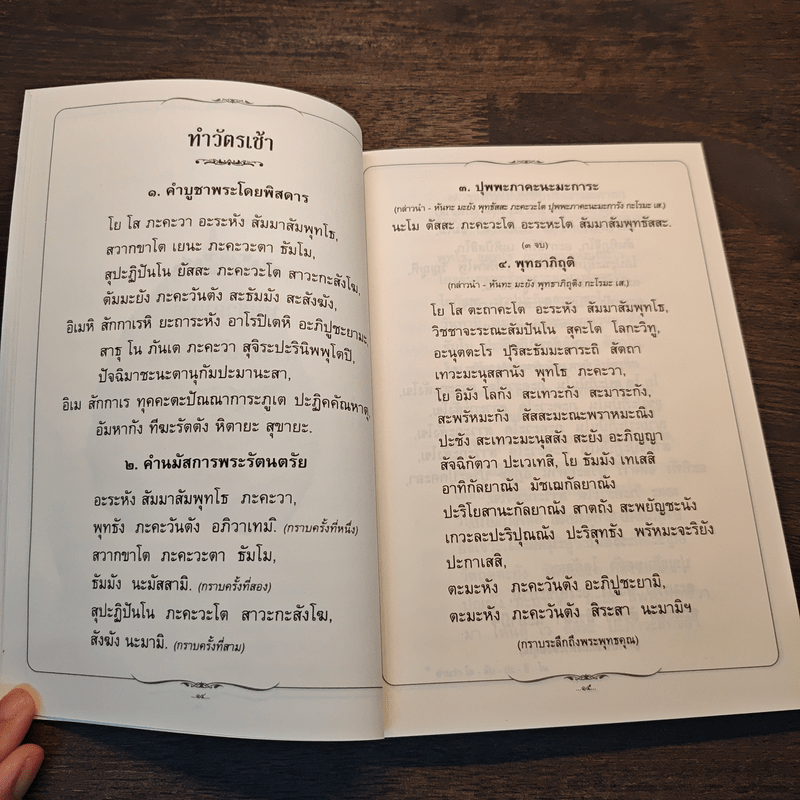 ทำวัตรเช้า
๑. คำบูชาพระโดยพิสดาร
โย โส ภะคะวา อะระหัง สัมมาสัมพุทโธ,
สวากขาโต เยนะ ภะคะวะตา ธัมโม,
สุปะฏิปันโน ยัสสะ ภะคะวะโต สาวะกะสังโฆ,
ตัมมะยัง ภะคะวันตัง สะธัมมัง สะสังฆัง,
อิเมหิ สักกาเรหิ ยะถาระหัง อาโรปิเตหิ อะภิปูชะยามะ,
สาธุ โน ภันเต ภะคะวา สุจิระปะรินิพพุโตปิ,
ปัจฉิมาชะนะตานุกัมปะมานะสา,
อิเม สักกาเร ทุคคะตะปัณณาการะภูเต ปะฏิคคัณหาตุ,
อัมหากัง ทีฆะรัตตัง หิตายะ สุขายะ.
๒. คำนมัสการพระรัตนตรัย
อะระหัง สัมมาสัมพุทโธ ภะคะวา,
พุทธัง ภะคะวันตัง อภิวาเทมิ. (กราบครั้งที่หนึ่ง)
สวากขาโต ภะคะวะตา ธัมโม,
ธัมมัง นะมัสสามิ. (กราบครั้งที่สอง)
สุปะฏิปันโน ภะคะวะโต สาวะกะสังโฆ,
สังฆัง นะมามิ. (กราบครั้งที่สาม)
๓. ปุพพะภาคะนะมะการะ
(กล่าวนำ - หันทะ มะยัง พุทธัสสะ ภะคะวะโต ปุพพะภาคะนะมะการัง กะโรมะ เส.)
นะโม ตัสสะ ภะคะวะโต อะระหะโต สัมมาสัมพุทธัสสะ.
(๓ จบ)
๔. พุทธาภิถุติ
(กล่าวนำ - หันทะ มะยัง พุทธาภิถุติง กะโรมะ เส.)
โย โส ตะถาคะโต อะระหัง สัมมาสัมพุทโธ,
วิชชาจะระณะสัมปันโน สุคะโต โลกะวิทู,
อะนุตตะโร ปุริสะธัมมะสาระถิ สัตถา
เทวะมะนุสสานัง พุทโธ ภะคะวา,
โย อิมัง โลกัง สะเทวะกัง สะมาระกัง,
สะพรัหมะกัง สัสสะมะณะพราหมะณิง
ปะชัง สะเทวะมะนุสสัง สะยัง อะภิญญา
สัจฉิกัตวา ปะเวเทสิ, โย ธัมมัง เทเสสิ
อาทิกัลยาณัง มัชเฌกัลยาณัง
ปะริโยสานะกัลยาณัง สาตถัง สะพยัญชะนัง
เกวะละปะริปุณณัง ปะริสุทธัง พรัหมะจะริยัง
ปะกาเสสิ,
ตะมะหัง ภะคะวันตัง อะภิปูชะยามิ,
ตะมะหัง ภะคะวันตัง สิระสา นะมามิฯ
(กราบระลึกถึงพระพุทธคุณ)